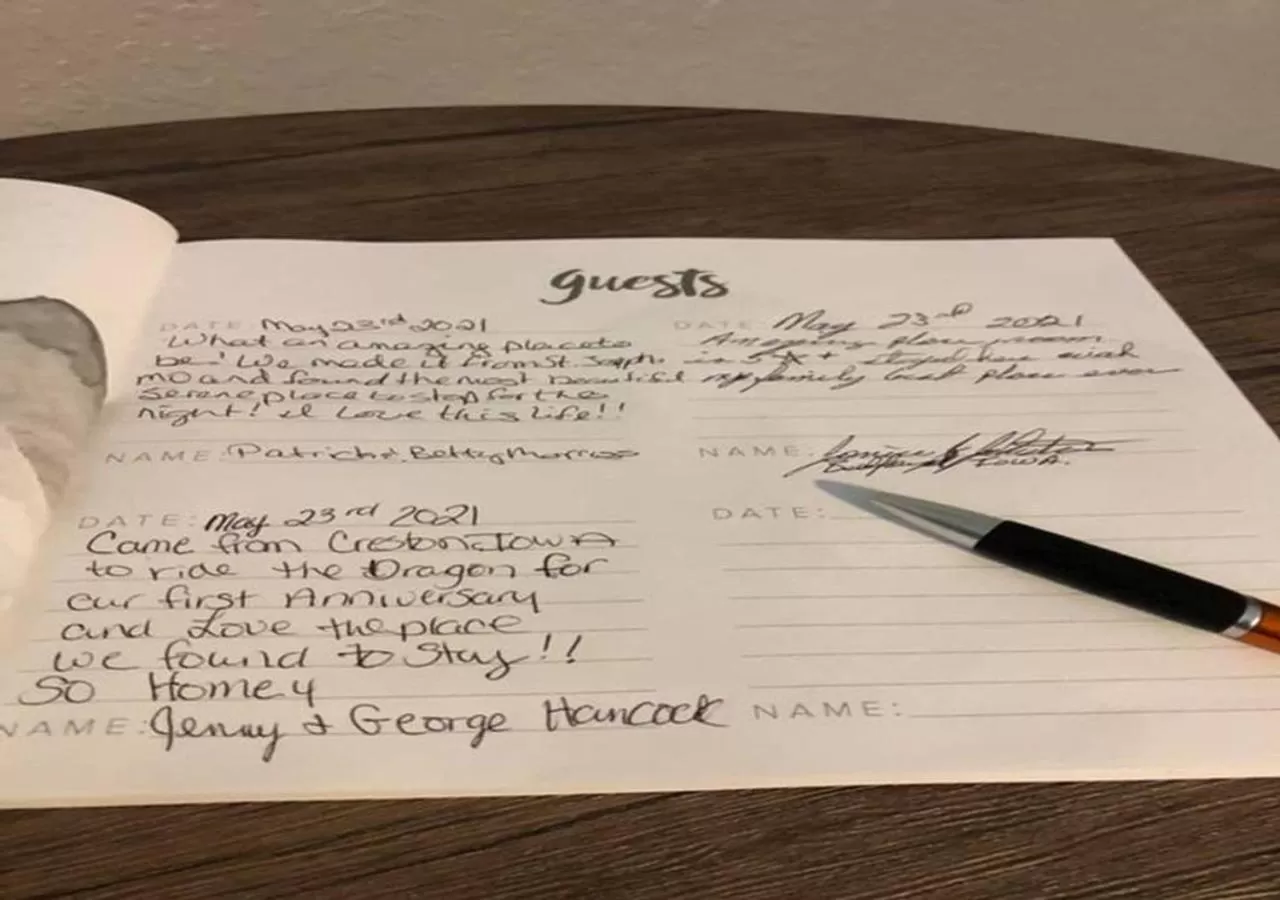 guests
DATE: May 23rd 2021
What an amazing place to
be! We made it from St. Joseph.
MO and found the most beautiful
serene place to stop for the
night! I Love this life!!
NAME: Patrick & Betty
DATE: May 23rd 2021
Amazing place room
is 5 ☆ + stayed here with
my family best place ever
NAME: IOWA.
DATE: May 23rd 2021
Came from Creston, IOWA
to ride the Dragon for
our first Anniversary
and Love the place
we found to stay!!
SO Homey
NAME: Jenny & George Hancock
DATE:
NAME: